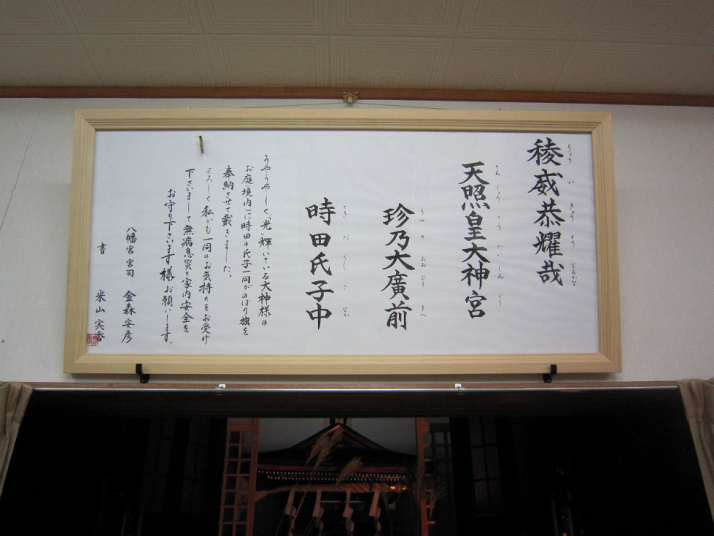 稜威恭耀哉
天照皇大神宮
珍乃大廣前
時田氏子中
うやうやしく、光り輝いている大神様の
お庭境内に時田の氏子一同がのぼり旗を
奉納させて戴きました。
よろしく私ども一同のお気持ちをお受け
下さいまして無病息災、家内安全を
お守り下さいます様お願いします。
八幡宮宮司 金森安彦
書 米山実香